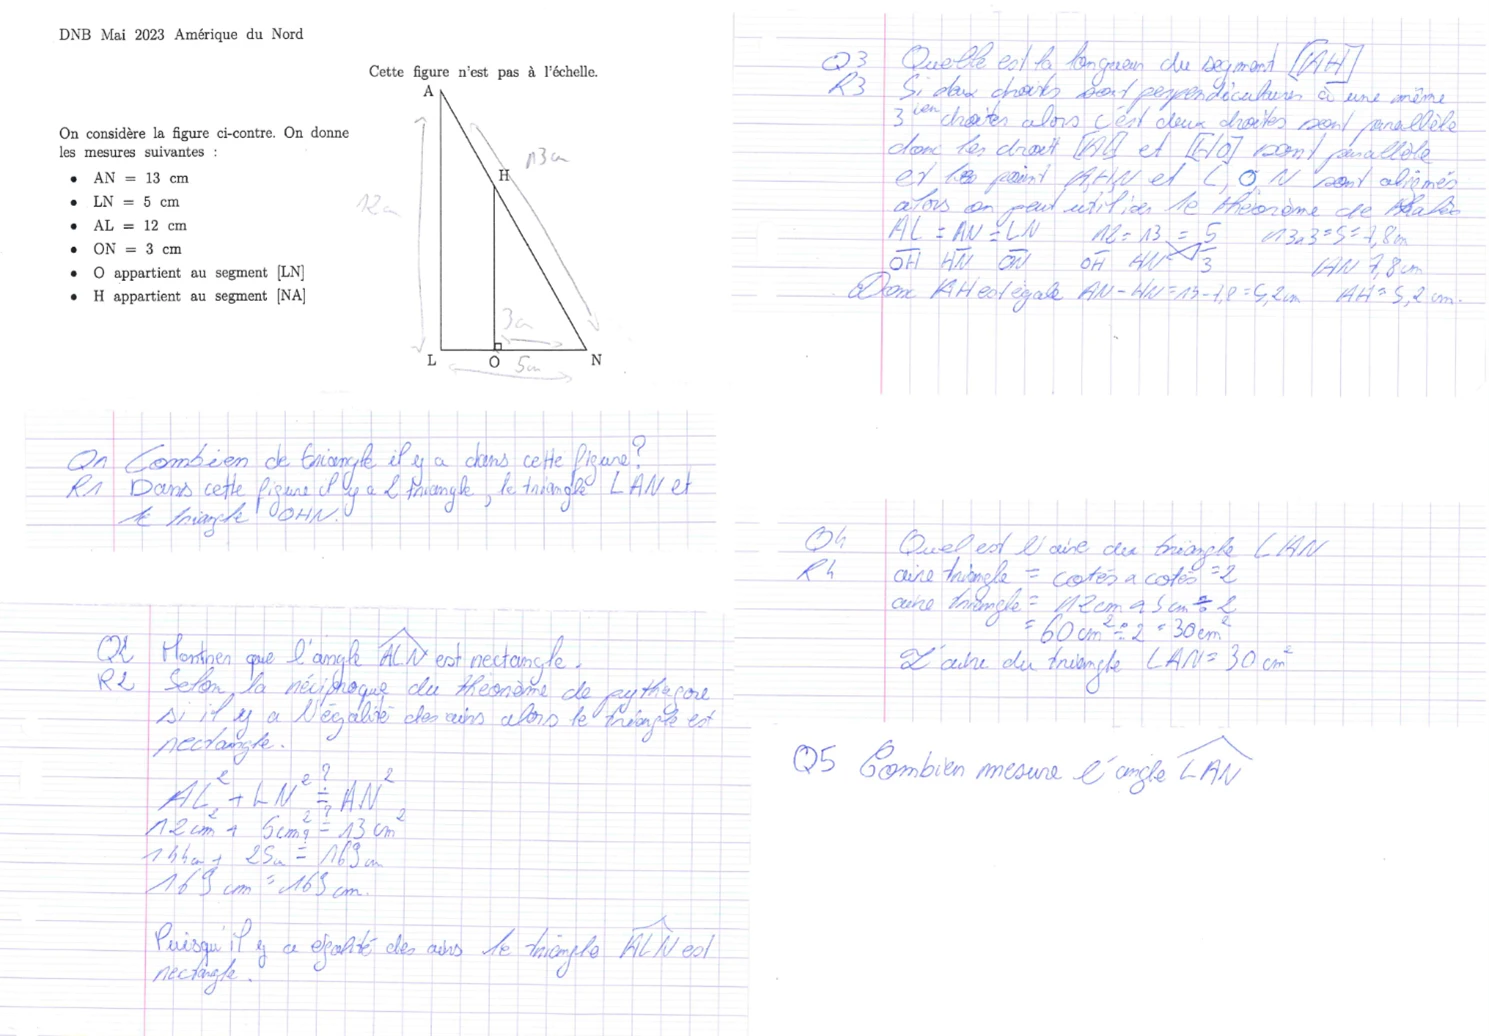 DNB Mai 2023 Amérique du Nord
Cette figure n'est pas à l'échelle.
On considère la figure ci-contre. On donne
les mesures suivantes :
• AN = 13 cm
• LN = 5 cm
• AL = 12 cm
• ON = 3 cm
• O appartient au segment [LN]
• H appartient au segment [NA]
A
13cm
H
12cm
3cm
L
O
5cm
N
Q1 Combien de triangle il y a dans cette figure?
R1 Dans cette figure il y a 2 triangle, le triangle LAN et
le triangle OHN.
Q2 Montrer que l'angle ALN est rectangle.
R2 Selon la réciproque du théorème de pythagore
si il y a l'égalité des airs alors le triangle est
rectangle.
AL² + LN² ≟ AN²
12cm² + 5cm² ≟ 13cm²
144cm + 25cm = 169cm
169cm = 169cm.
Puisqu'il y a égalité des airs le triangle ALN est
rectangle.
Q3 Quelle est la longueur du segment [AH]
R3 Si deux droites sont perpendiculaires à une même
3ième droites alors c'est deux droites sont parallèle
donc les droit [AL] et [HO] sont parallèle
et les point A,H,N et L,O,N sont alignés
alors on peut utiliser le théorème de thalès
AL = AN = LN 12 = 13 = 5 13x3÷5=7,8cm
OH HN ON OH HN 3 HN 7,8cm
Donc AH est égale AN - HN = 13-7,8 = 5,2cm AH = 5,2 cm.
Q4 Quel est l'aire du triangle LAN
R4 aire triangle = cotés x cotés ÷2
aire triangle = 12cm x 5cm ÷ 2
= 60cm² ÷ 2 = 30cm²
L'aire du triangle LAN = 30 cm²
Q5 Combien mesure l'angle LAN